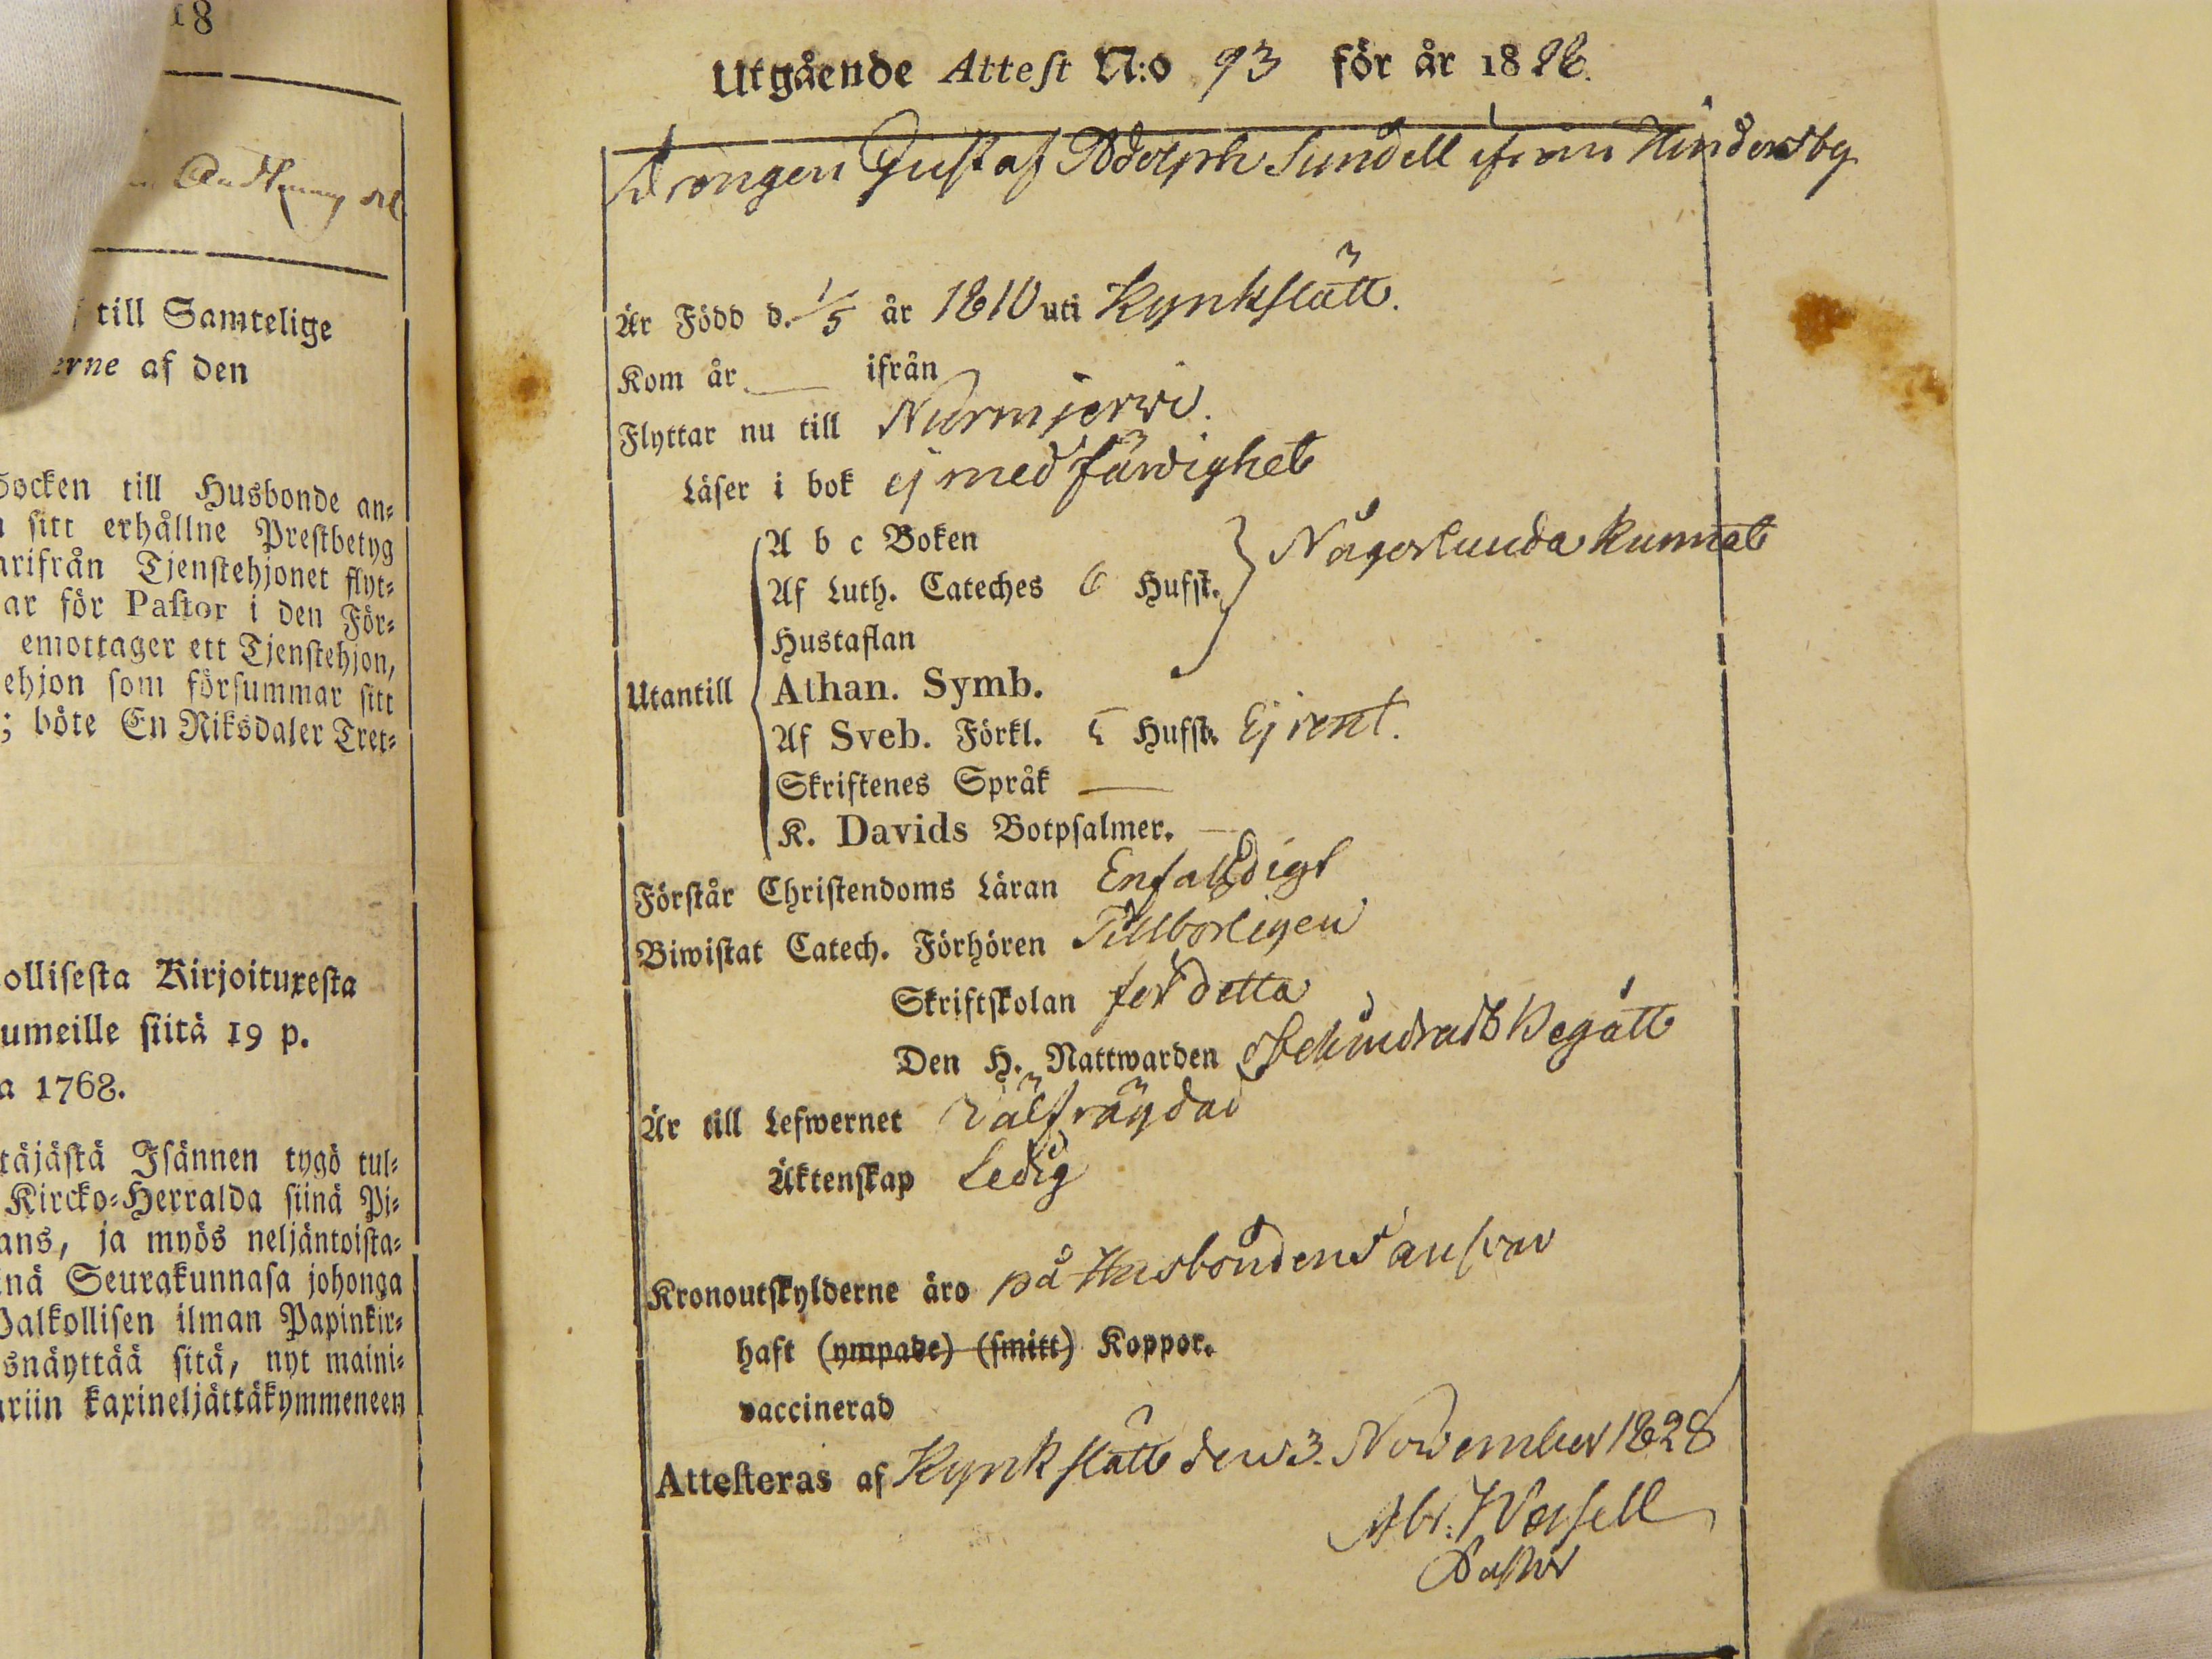 18
till Samtelige
erne af den
Socken till Husbonde an=
sitt erhållne Prestbetyg
arifrån Tjenstehjonet flyt=
ar för Pastor i den För=
emottager ett Tjenstehjon,
ehjon som försummar sitt
; böte En Riksdaler Tret=
ollisesta Kirjoituxesta
umeille siitä 19 p.
a 1768.
täjästä Isännen tygö tul=
Kircko=Herralda siinä Pi=
ans, ja myös neljäntoista=
inä Seurakunnasa johonga
Palkollisen ilman Papinkir=
snäyttää sitä, nyt maini=
ariin kaxineljättäkymmeneen
Utgående Attest N:o 93 för år 18
Drengen Gustaf Adolph Sundell ifrån Hindersby
Är Född d. 1/5 år 1810 uti Kyrkslätt.
Kom år — ifrån
Flyttar nu till Nurmijerwi.
Läser i bok ej med färdighet
A b c Boken
Af Luth. Cateches 6 Hufst. } Någorlunda kunnat
Hustaflan
Utantill { Athan. Symb.
Af Sveb. Förkl. 5 Hufst. Ej rent.
Skriftenes Språk —
K. Davids Botpsalmer. —
Förstår Christendoms Läran Enfaldigt
Biwistat Catech. Förhören Tillbörligen
Skriftskolan för detta
Den H. Nattwarden Obehindradt Begått
Är till Lefwernet Välfrägdad
Äktenskap Ledig
Kronoutskylderne äro på Husbondens answar
haft (ympade) (smitt) Koppor.
vaccinerad
Attesteras af Kyrkslätt den 3. November 1828
Abr.
Pastor